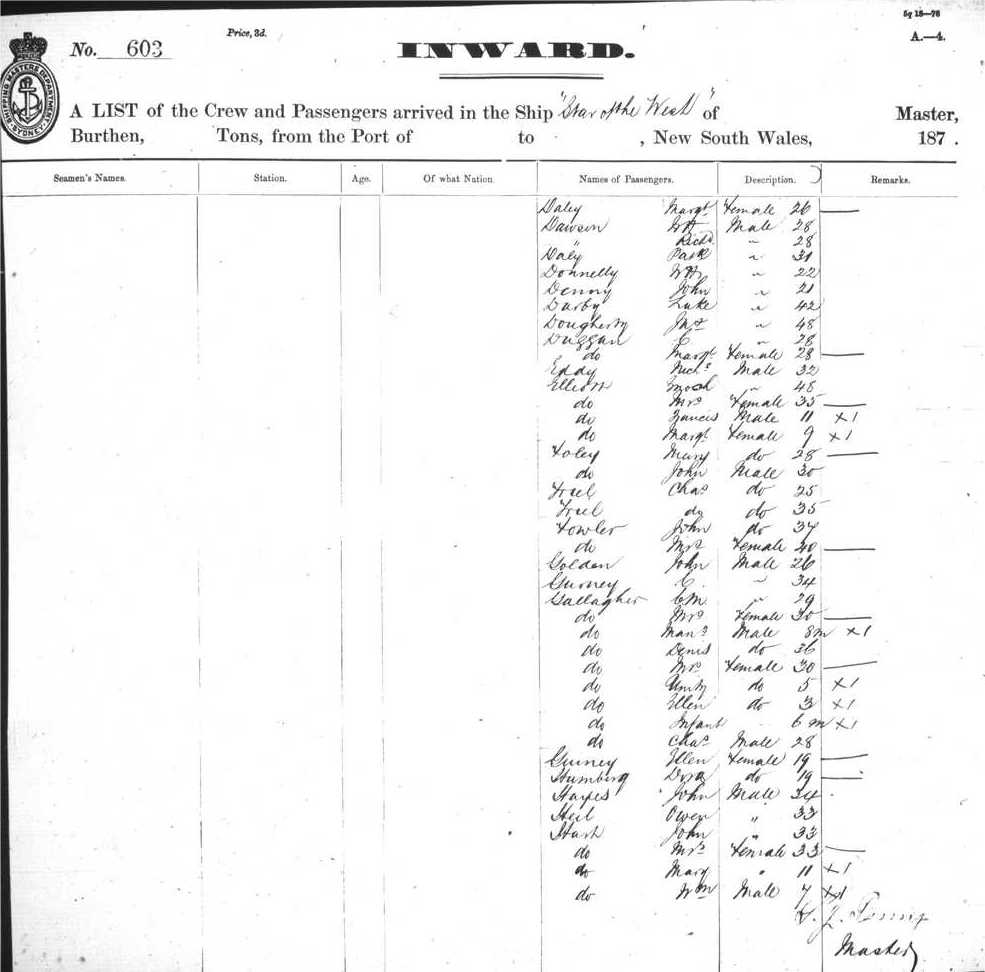 5g 18—76
Price, 3d.
No. 603
INWARD.
A.—4.
SHIPPING MASTERS DEPARTMENT SYDNEY
A LIST of the Crew and Passengers arrived in the Ship "Star of the West" of Master,
Burthen, Tons, from the Port of to , New South Wales, 187 .
Seamen's Names. Station. Age. Of what Nation. Names of Passengers. Description. Remarks.
Daley Margt Female 26 —
Dawson Wm Male 28
" Richd " 28
Daly Patk " 31
Donnelly Wm " 22
Denny John " 21
Darby Luke " 42
Dougherty " 48
Duggan C " 28
do Margt Female 28 —
Eddy Nichs Male 32
Elliott Enoch " 48
do Mrs Female 35 —
do Francis Male 11 x1
do Margt Female 9 x1
Foley Mary do 28 —
do John Male 30
Friel Chas do 25
Friel do do 35
Fowler John do 37
do Mrs Female 40 —
Golden John Male 26
Gurney C. " 34
Gallagher C M " 29
do Mrs Female 30 —
do Mans Male 8m x1
do Denis do 36
do Mrs Female 30 —
do Unity do 5 x1
do Ellen do 3 x1
do Infant 6 m x1
do Chas Male 28
Guiney Ellen Female 19 —
Humberg Dora do 19 —
Harpes John Male 34
Heil Owen " 33
Hash John " 33
do Mrs Female 33 —
do Mary " 11 x1
do Wm Male 7 x1
J.
Master